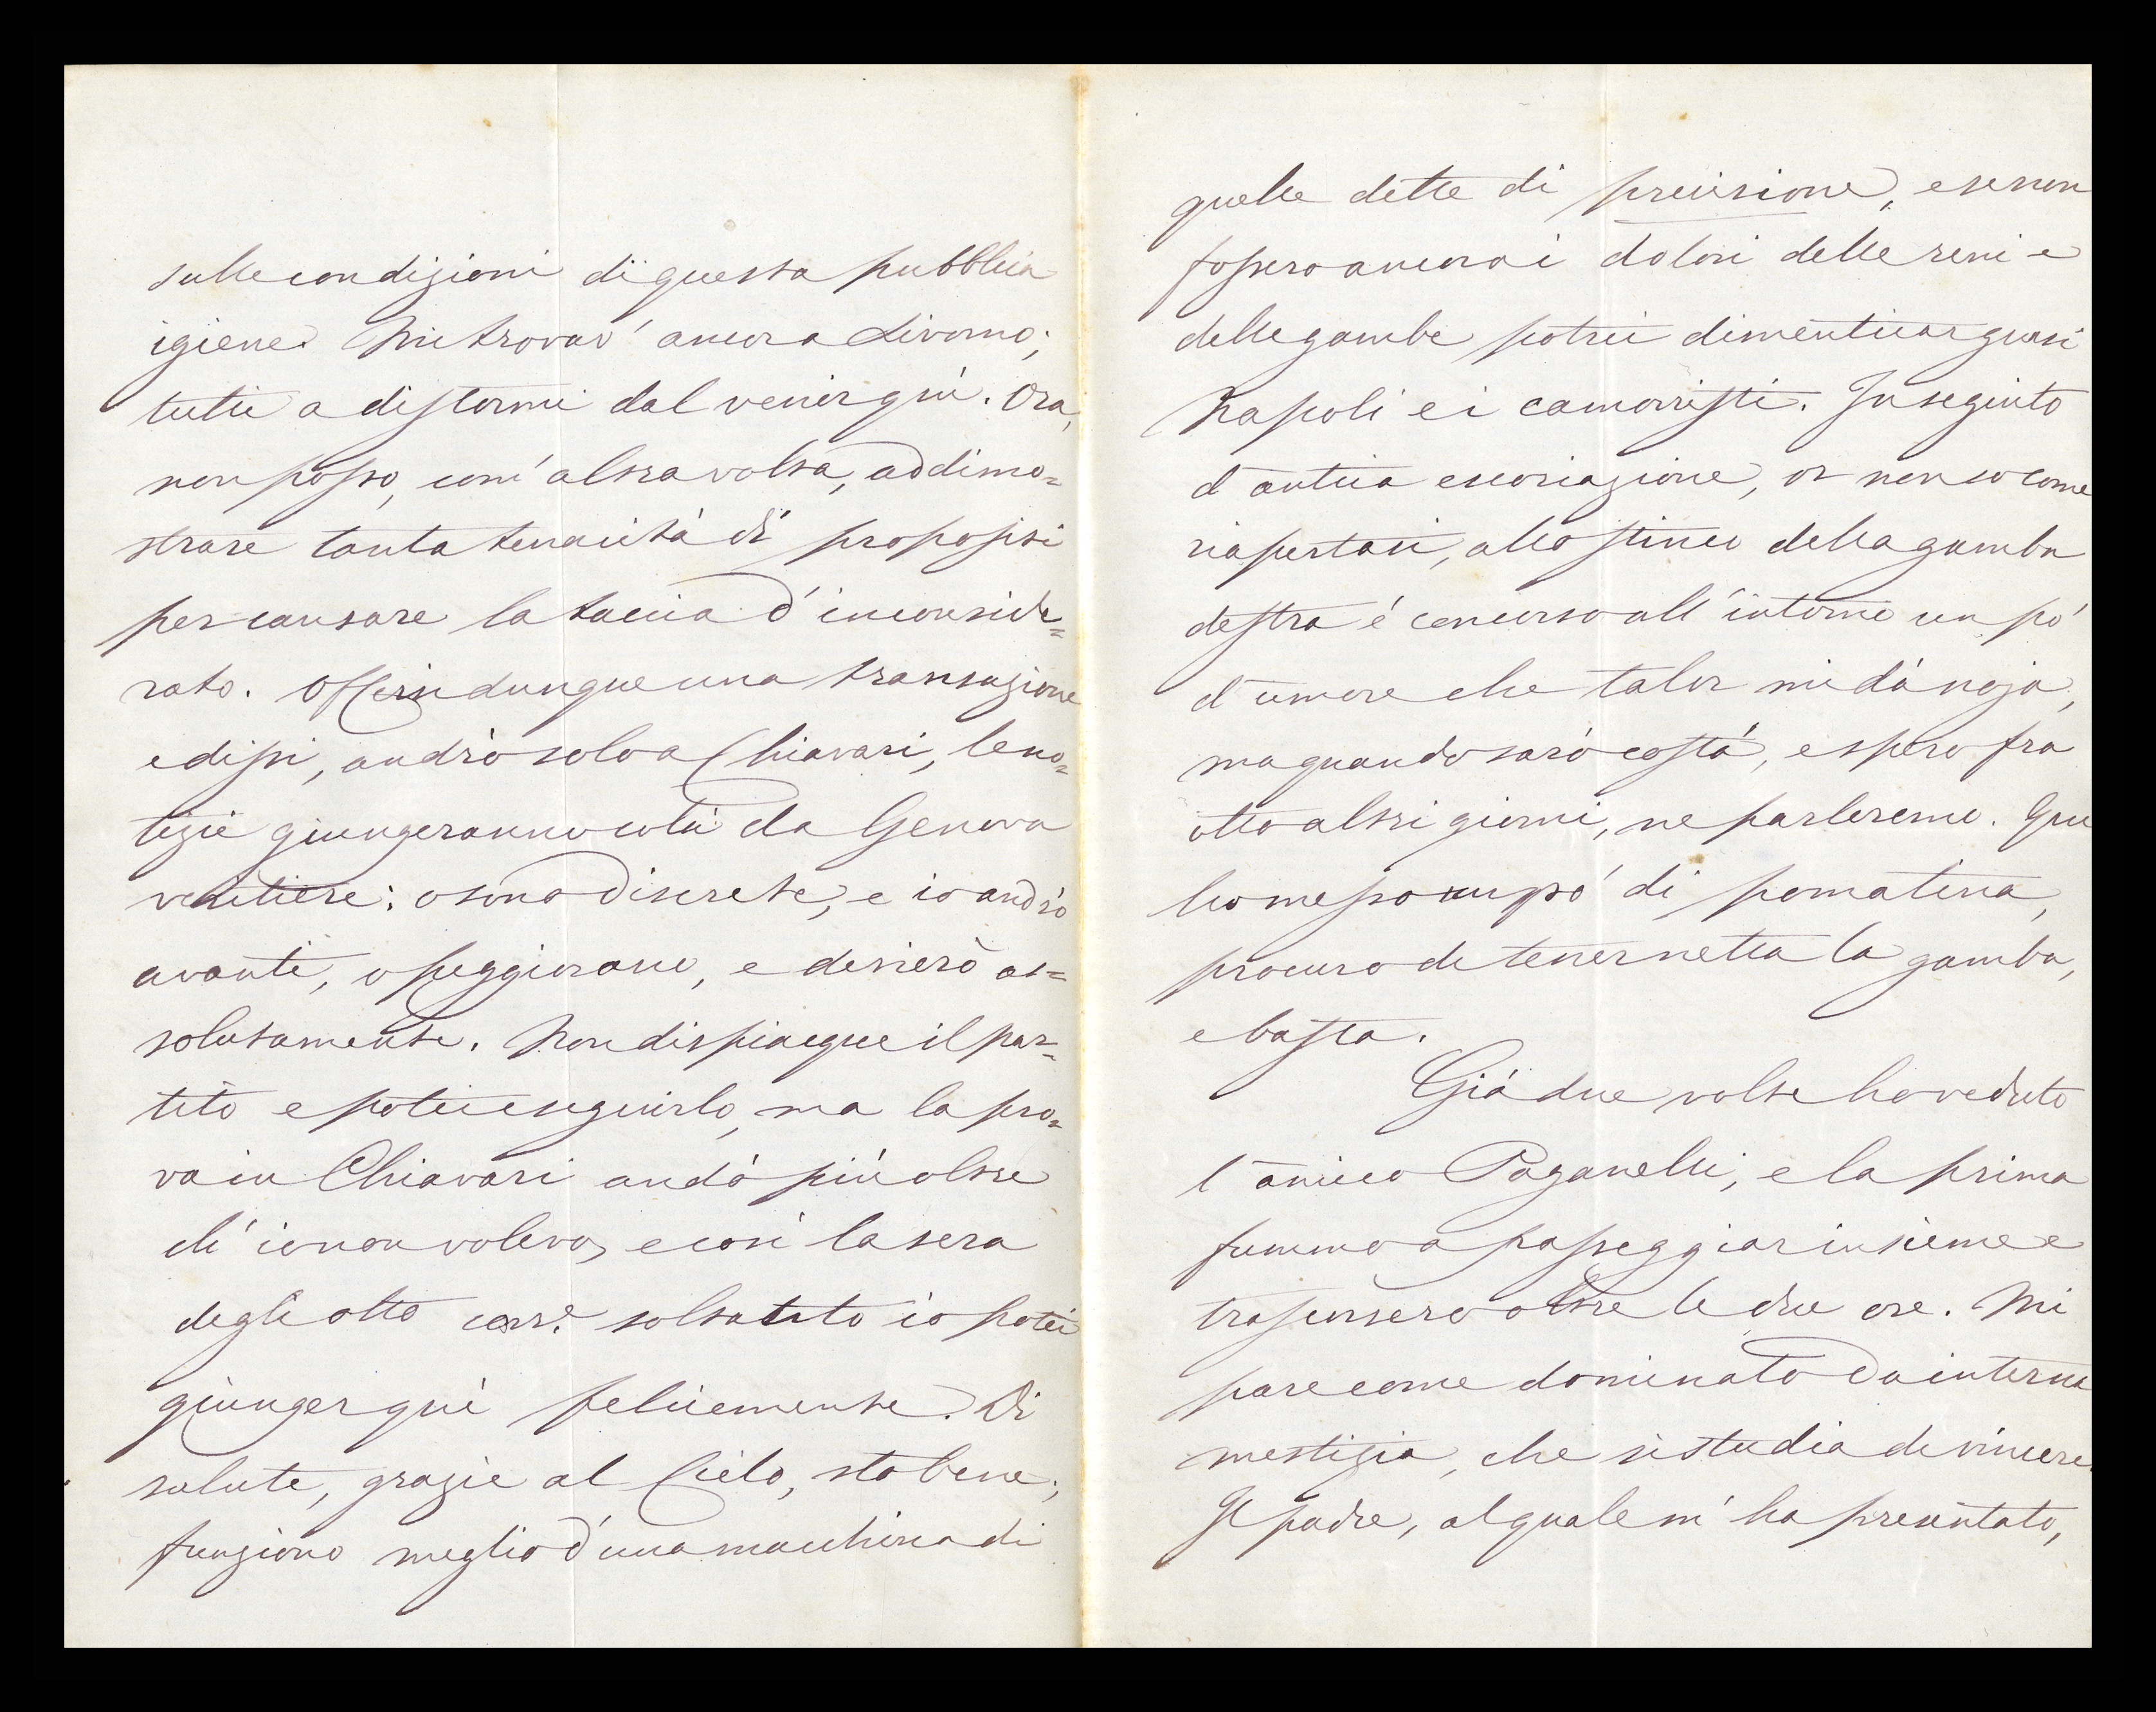 sulle condizioni di questa pubblica
igiene. Mi trovavo ancora a Livorno;
tutti a distormi dal venir quì. Ora,
non posso, com'altra volta, addimo=
strare tanta tenacità di propositi
per causare la taccia d'inconside=
rato. Offerii dunque una transazione
e dissi, andrò solo a Chiavari, le no=
tizie giungeranno colà da Genova
veritiere: o sono discrete, e io andrò
avanti, o peggiorano, e desisterò as=
solutamente. Non dispiacque il par=
tito e potei eseguirlo, ma la pro=
va in Chiavari andò più oltre
ch'io non volevo, e così la sera
degli otto corr.e soltanto io potei
giunger quì felicemente. Di
salute, grazie al Cielo, sto bene;
funziono meglio d'una macchina di
quelle dette di precisione, e se non
fossero ancora i dolori delle reni e
delle gambe potrei dimenticar quasi
Napoli e i camorristi. In seguito
d'antica escoriazione, or non so come
riapertasi, allo stinco della gamba
destra é concorso all'intorno un pó
d'umore che talor mi dá noja,
ma quando saró costá, e spero fra
otto altri giorni, ne parleremo. Quì
ho messo un pó di pomatina,
procuro di tener netta la gamba,
e basta.
Giá due volte ho veduto
l'amico Paganelli, e la prima
fummo a passeggiar insieme e
trascorsero oltre le due ore. Mi
pare come dominato da interna
mestizia, che si studia di vincere.
Il padre, al quale m'ha presentato,